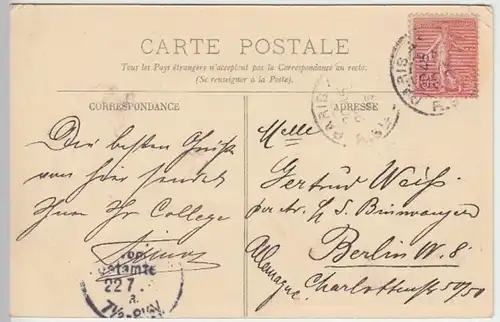 CARTE POSTALE
Tous les Pays étrangers n'acceptent pas la Correspondance au recto.
(Se renseigner à la Poste).
CORRESPONDANCE
ADRESSE
Die besten Grüße
von hier sendet
Ihnen Ihr College
Melle
Gertrud Weiß
per Adr. S. Binswanger
Berlin W. 8
Allemagne Charlottenstr 50/50
PARIS
PARIS
22 7.